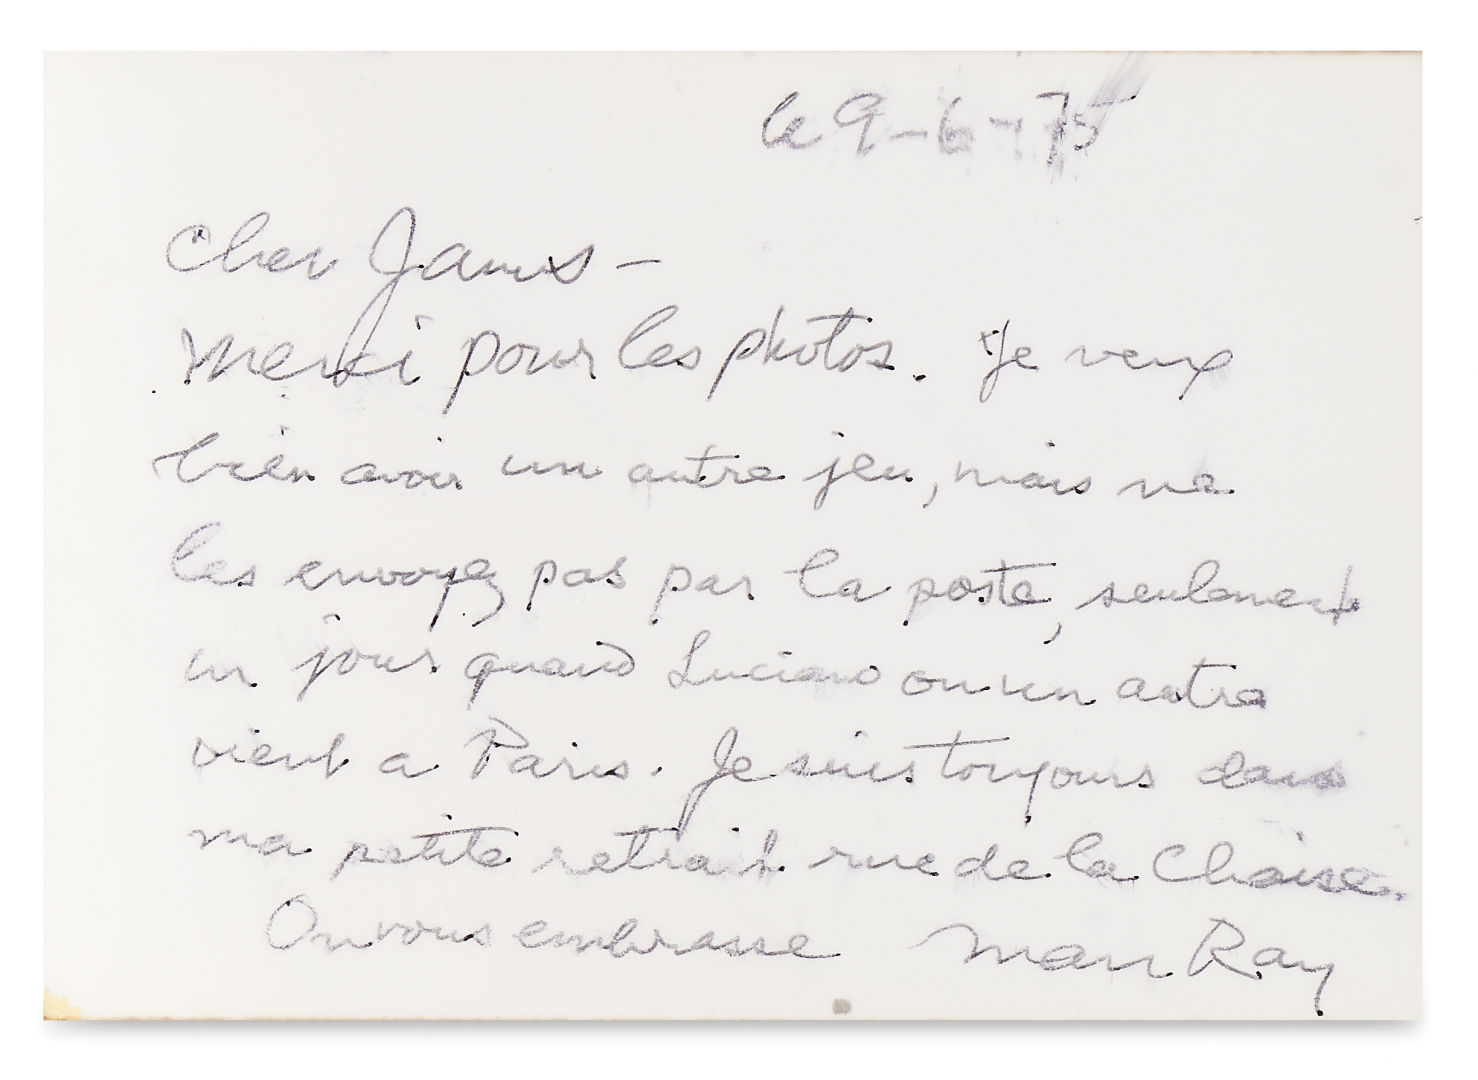 le 9-6-75
Cher James -
Merci pour les photos. Je veux
bien avoir un autre jeu, mais ne
les envoyez pas par la poste, seulement
un jour quand Luciano ou un autre
vient a Paris. Je suis toujours dans
ma petite retrait rue de la Chaise.
On vous embrasse Man Ray